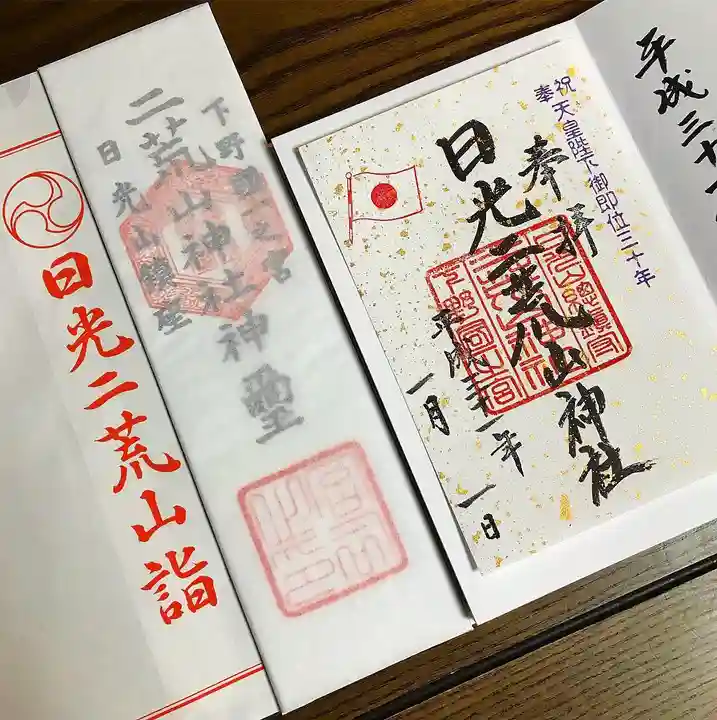 日光二荒山詣
下野國一之宮
二荒山神社神璽
日光山鎮座
平成三十一
祝
奉 天皇陛下御即位三十年
奉拝
日光二荒山神社
平成三十一年
一月一日